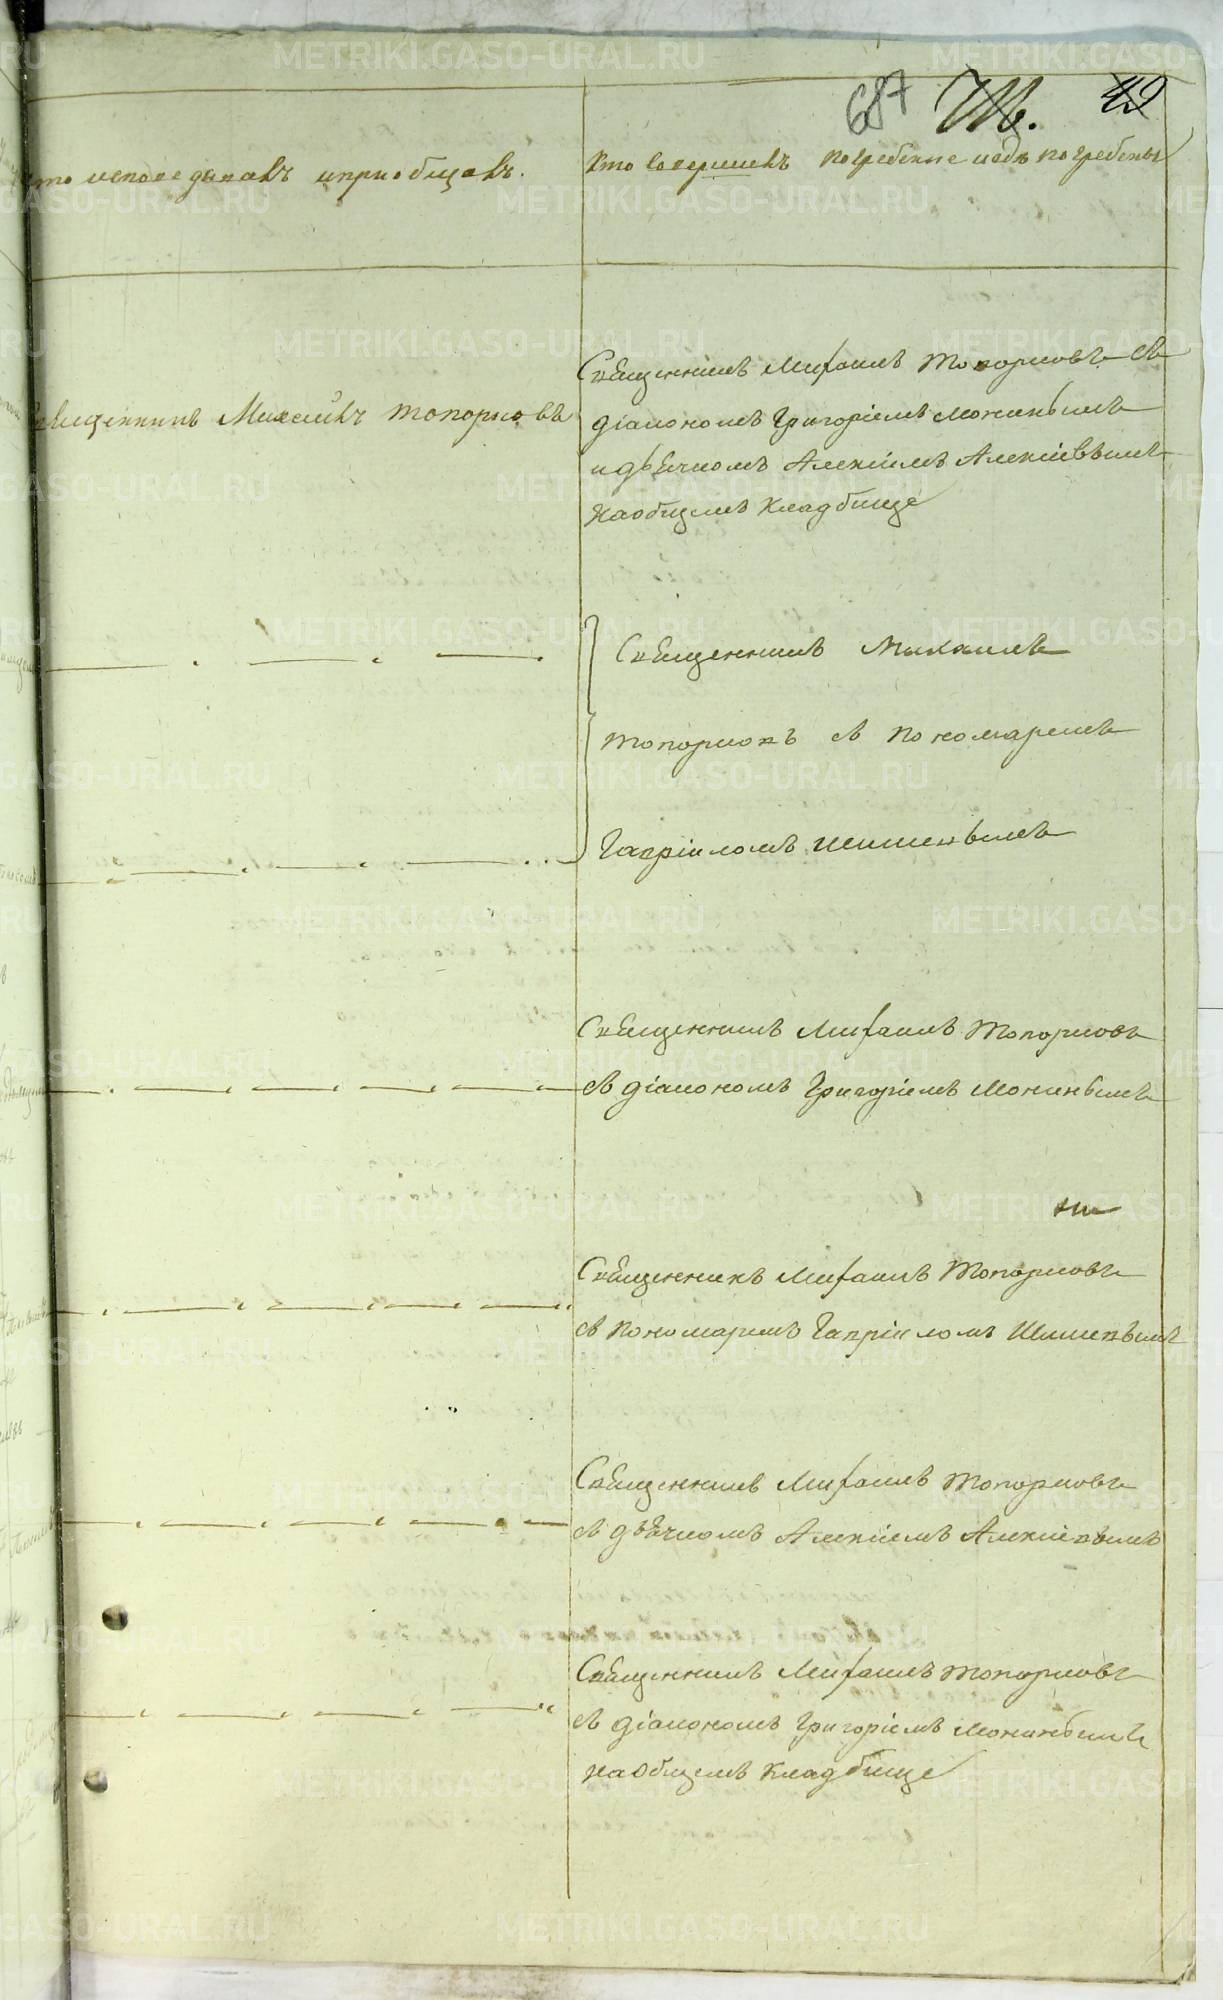 687 42
Кто исповедывалъ и приобщалъ.
Кто совершалъ погребение и гдѣ погребены
Священникъ Михаилъ Топорковъ
Священникъ Михаилъ Топорковъ съ
діакономъ Григоріемъ
и дьячкомъ Алексіемъ Алексіевымъ
на общемъ кладбище
Священникъ Михаилъ
Топорковъ съ пономаремъ
Гавріиломъ Шишевымъ
Священникъ Михаилъ Топорковъ
съ діакономъ Григоріемъ
Священникъ Михаилъ Топорковъ
съ пономаремъ Гавріиломъ Шишевымъ
Священникъ Михаилъ Топорковъ
съ дьячкомъ Алексіемъ Алексіевымъ
Священникъ Михаилъ Топорковъ
съ діакономъ Григоріемъ
на общемъ кладбище
METRIKI.GASO-URAL.RU